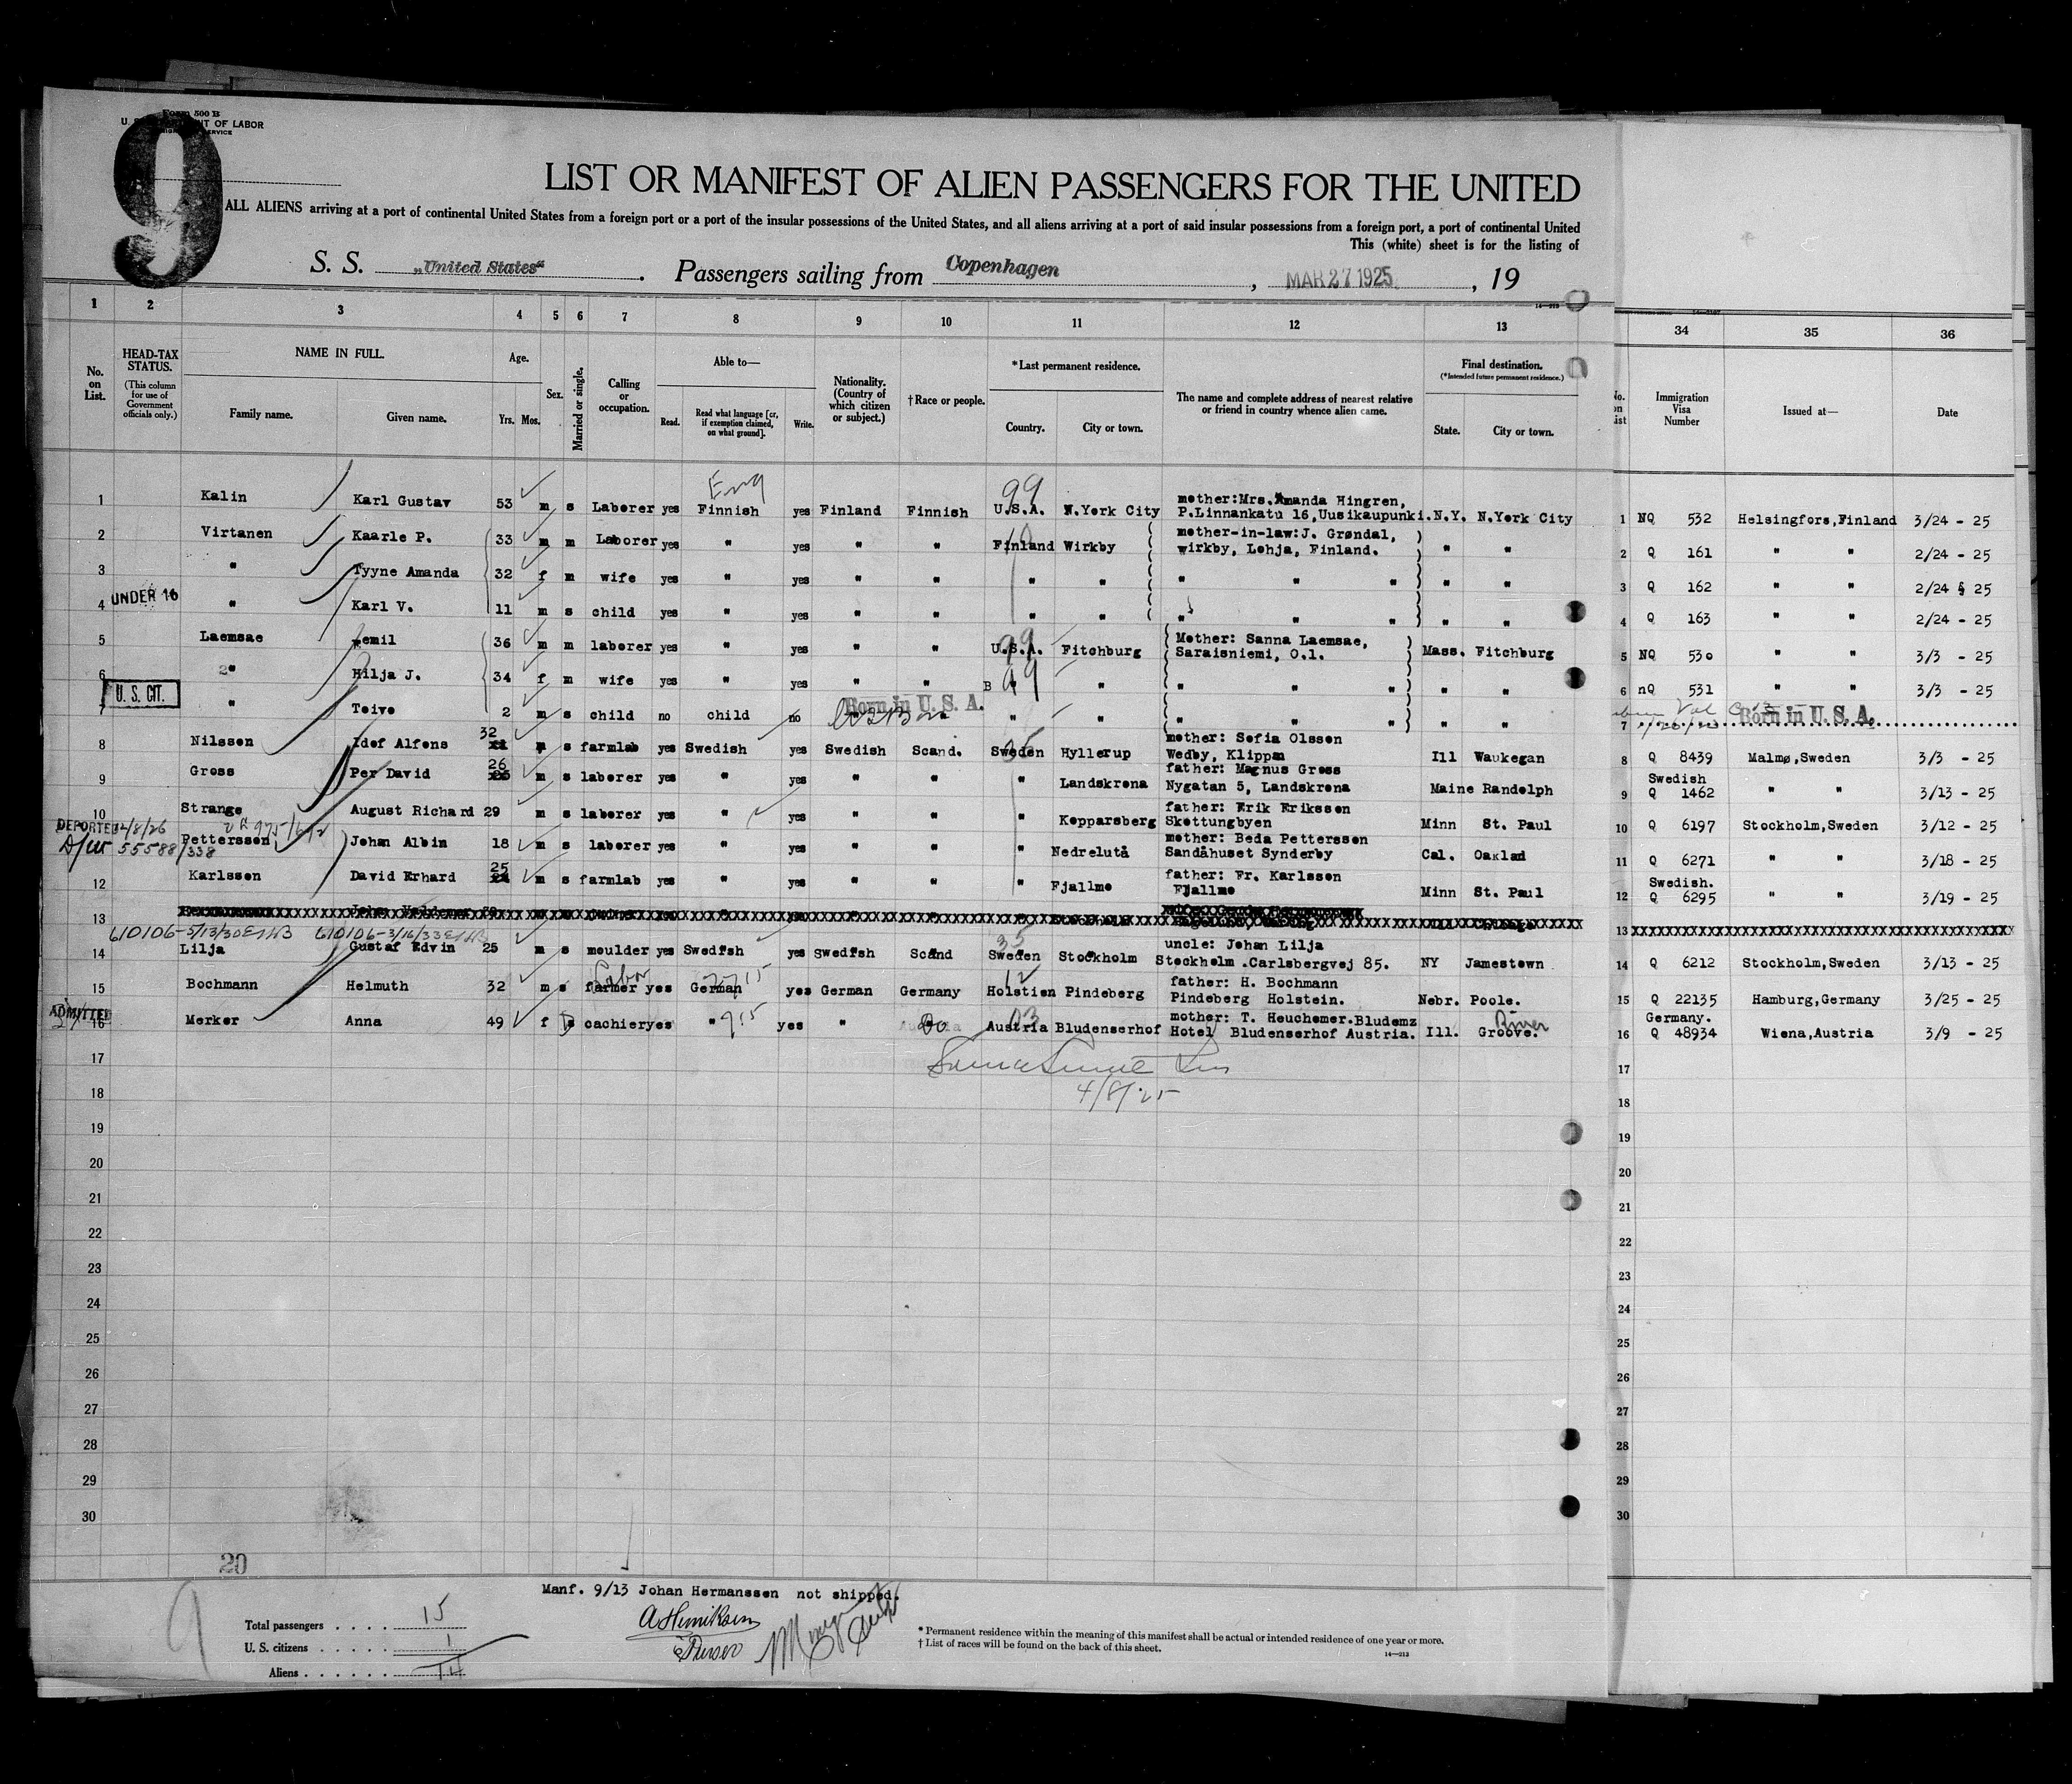 Form 500 B
U. S. DEPARTMENT OF LABOR
9
LIST OR MANIFEST OF ALIEN PASSENGERS FOR THE UNITED
ALL ALIENS arriving at a port of continental United States from a foreign port or a port of the insular possessions of the United States, and all aliens arriving at a port of said insular possessions from a foreign port, a port of continental United
This (white) sheet is for the listing of
S. S. „United States" . Passengers sailing from Copenhagen , MAR 27 1925 , 19
14—213
1 2 3 4 5 6 7 8 9 10 11 12 13 34 35 36
No. on List. HEAD-TAX STATUS. (This column for use of Government officials only.) NAME IN FULL. Family name. Given name. Age. Yrs. Mos. Sex. Married or single. Calling or occupation. Able to— Read. Read what language [or, if exemption claimed, on what ground]. Write. Nationality. (Country of which citizen or subject.) †Race or people. *Last permanent residence. Country. City or town. The name and complete address of nearest relative or friend in country whence alien came. Final destination. (*Intended future permanent residence.) State. City or town. No. on List Immigration Visa Number Issued at— Date
Eng 99 mother:Mrs.Amanda Hingren,
1 Kalin Karl Gustav 53 m s Laborer yes Finnish yes Finland Finnish U.S.A. N.York City P.Linnankatu 16,Uusikaupunki. N.Y. N.York City 1 NQ 532 Helsingfors,Finland 3/24 - 25
mother-in-law:J. Grøndal,
2 Virtanen Kaarle P. 33 m m Laborer yes " yes " " Finland Wirkby wirkby, Lohja, Finland. " " 2 Q 161 " " 2/24 - 25
3 " Tyyne Amanda 32 f m wife yes " yes " " " " " " " " " 3 Q 162 " " 2/24 - 25
UNDER 16
4 " Karl V. 11 m s child yes " yes " " " " " " " " 4 Q 163 " " 2/24 - 25
99 Mother: Sanna Laemsae,
5 Laemsae emil 36 m m laborer yes " yes " " U.S.A. Fitchburg Saraisniemi, O.l. Mass. Fitchburg 5 NQ 530 " " 3/3 - 25
6 " Hilja J. 34 f m wife yes " yes " " " " " " " " " 6 nQ 531 " " 3/3 - 25
U. S. CIT. Born in U. S. A. Born in U. S. A.
7 " Toivo 2 m s child no child no " " " " " " " 7
32 mother: Sofia Olsson
8 Nilsson Idof Alfons m s farmlab yes Swedish yes Swedish Scand. Sweden Hyllerup Wedby, Klippan Ill Waukegan 8 Q 8439 Malmø,Sweden 3/3 - 25
26 father: Magnus Gross Swedish
9 Gross Per David m s laborer yes " yes " " " Landskrona Nygatan 5, Landskrona Maine Randolph 9 Q 1462 " " 3/13 - 25
father: Erik Eriksson
10 Strange August Richard 29 m s laborer yes " yes " " " Kopparsberg Skottungbyen Minn St. Paul 10 Q 6197 Stockholm,Sweden 3/12 - 25
DEPORTED 2/8/26 mother: Beda Pettersson
55588/338 Pettersson, Johan Albin 18 m s laborer yes " yes " " " Nedrelutå Sandåhuset Synderby Cal. Oaklad 11 Q 6271 " " 3/18 - 25
25 father: Fr. Karlsson Swedish.
12 Karlsson David Erhard m s farmlab yes " yes " " " Fjallmo Fjallmo Minn St. Paul 12 Q 6295 " " 3/19 - 25
13 13
610106-5/13/30 610106-3/16/33 uncle: Johan Lilja
14 Lilja Gustaf Edvin 25 m s moulder yes Swedfsh yes Swedfsh Scand Sweden Stockholm Stockholm .Carlsbergvej 85. NY Jamestown 14 Q 6212 Stockholm,Sweden 3/13 - 25
father: H. Bochmann
15 Bochmann Helmuth 32 m s farmer yes German yes German Germany Holstien Pindeberg Pindeberg Holstein. Nebr. Poole. 15 Q 22135 Hamburg,Germany 3/25 - 25
ADMITTED mother: T. Heuchemer.Bludemz River Germany.
16 Merker Anna 49 f s cachier yes " yes " Do Austria Bludenserhof Hotel Bludenserhof Austria. Ill. Groove. 16 Q 48934 Wiena,Austria 3/9 - 25
17 17
4/8/25
18 18
19 19
20 20
21 21
22 22
23 23
24 24
25 25
26 26
27 27
28 28
29 29
30 30
20
Manf. 9/13 Johan Hermanssen not shipped.
9
Total passengers . . . . 15
U. S. citizens . . . . . 1
Aliens . . . . . . 14
A Henriksen
Purser
* Permanent residence within the meaning of this manifest shall be actual or intended residence of one year or more.
† List of races will be found on the back of this sheet.
14—213